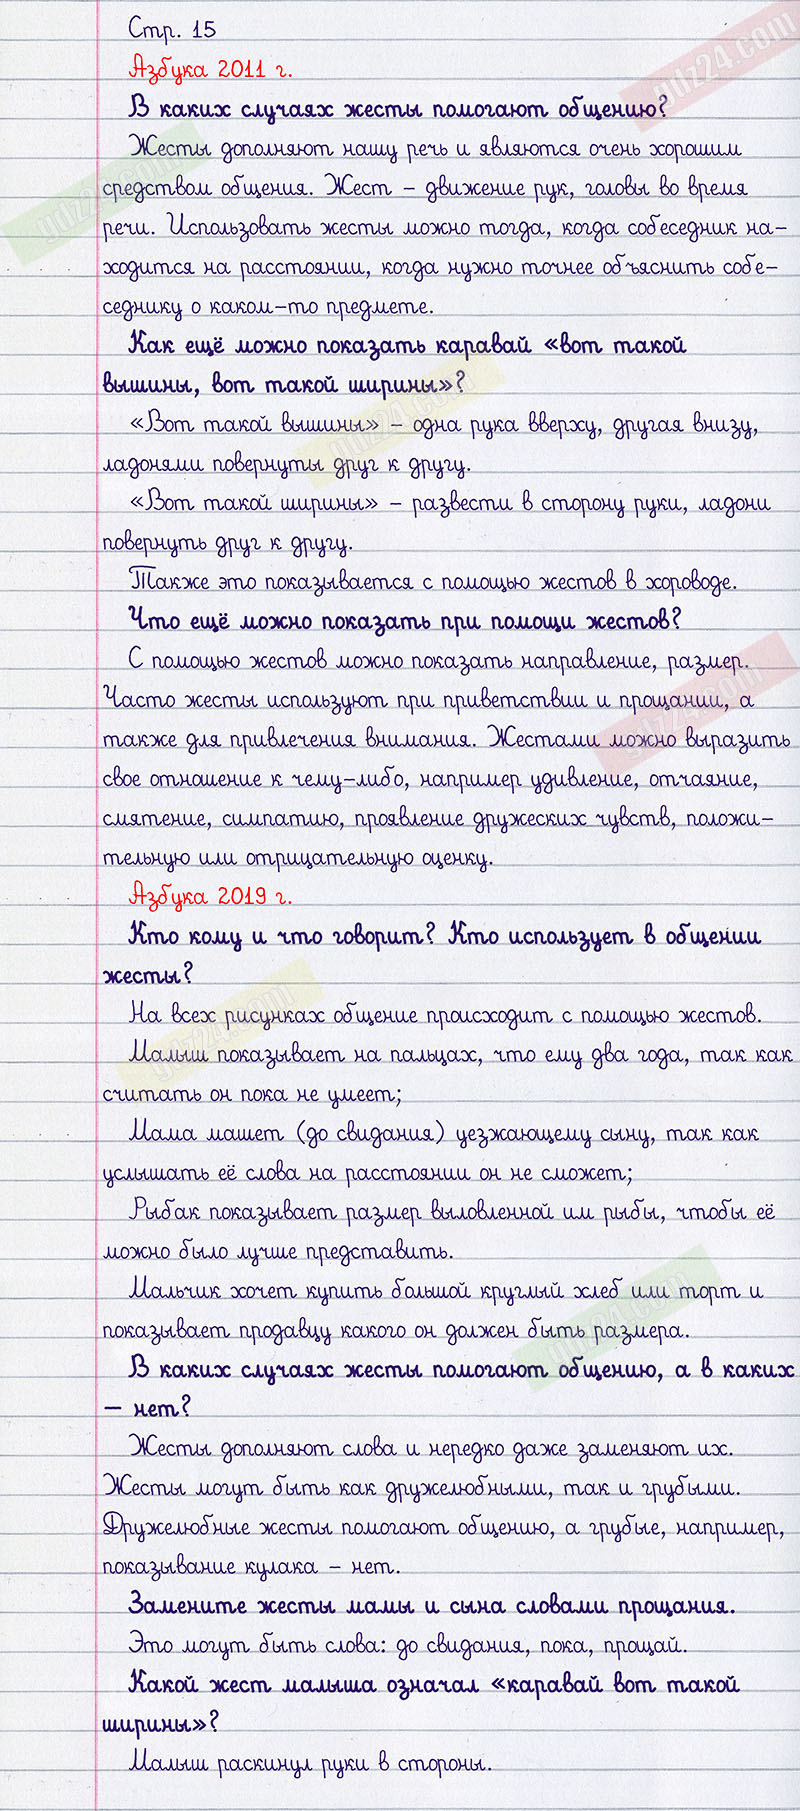 Стр. 15
Азбука 2011 г.
В каких случаях жесты помогают общению?
Жесты дополняют нашу речь и являются очень хорошим
средством общения. Жест – движение рук, головы во время
речи. Использовать жесты можно тогда, когда собеседник на-
ходится на расстоянии, когда нужно точнее объяснить собе-
седнику о каком-то предмете.
Как ещё можно показать каравай «вот такой
вышины, вот такой ширины»?
«Вот такой вышины» – одна рука вверху, другая внизу,
ладонями повернуты друг к другу.
«Вот такой ширины» – развести в сторону руки, ладони
повернуть друг к другу.
Также это показывается с помощью жестов в хороводе.
Что ещё можно показать при помощи жестов?
С помощью жестов можно показать направление, размер.
Часто жесты используют при приветствии и прощании, а
также для привлечения внимания. Жестами можно выразить
свое отношение к чему-либо, например удивление, отчаяние,
смятение, симпатию, проявление дружеских чувств, положи-
тельную или отрицательную оценку.
Азбука 2019 г.
Кто кому и что говорит? Кто использует в общении
жесты?
На всех рисунках общение происходит с помощью жестов.
Малыш показывает на пальцах, что ему два года, так как
считать он пока не умеет;
Мама машет (до свидания) уезжающему сыну, так как
услышать её слова на расстоянии он не сможет;
Рыбак показывает размер выловленной им рыбы, чтобы её
можно было лучше представить.
Мальчик хочет купить большой круглый хлеб или торт и
показывает продавцу какого он должен быть размера.
В каких случаях жесты помогают общению, а в каких
– нет?
Жесты дополняют слова и нередко даже заменяют их.
Жесты могут быть как дружелюбными, так и грубыми.
Дружелюбные жесты помогают общению, а грубые, например,
показывание кулака – нет.
Замените жесты мамы и сына словами прощания.
Это могут быть слова: до свидания, пока, прощай.
Какой жест малыша означал «каравай вот такой
ширины»?
Малыш раскинул руки в стороны.
gdz24.com
gdz24.com
gdz24.com
gdz24.com
gdz24.com
gdz24.com